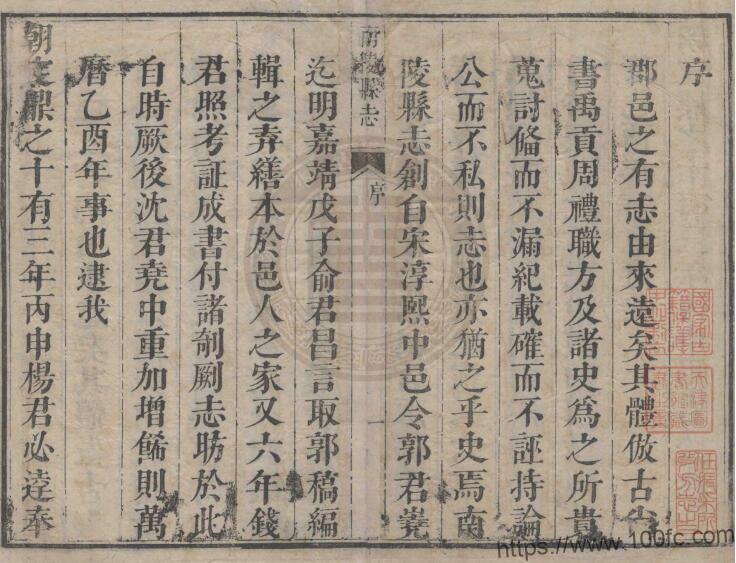 序
郡邑之有志由來遠矣其體倣古尚
書禹貢周禮職方及諸史為之所貴
蒐討備而不漏紀載確而不誣持論
公而不私則志也亦猶之乎史焉南
陵縣志創自宋淳熙中邑令郭君嶤
南陵縣志
序
一
迄明嘉靖戊子俞君昌言取郭稿編
輯之弆繕本於邑人之家又六年錢
君照考証成書付諸剞劂志昉於此
自時厥後沈君堯中重加增餙則萬
曆乙酉年事也逮我
朝定鼎之十有三年丙申楊君必逵奉
https://www.100fc.com